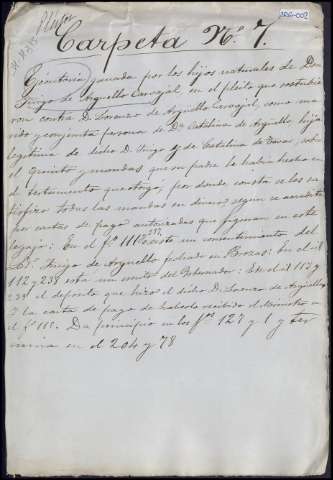 Carpeta Nº 7.
Ejecutoria ganada por los hijos naturales de Dn
Iñigo de Argüello Carvajal, en el pleito que sostubie
ron contra D. Lorenzo de Argüello Carvajal, como ma
rido y conjunta persona de Dª Catalina de Argüello hija
legitima de dicho D. Iñigo y de Catalina de, sobre
el Quinto y mandas que su padre les habia hecho en
el testamento que otorgó; por donde consta se les sa
tisfizo todas las mandas en dinero, segun se acredita
por cartas de pago autorizadas que figuran en este
legajo: En el fº 111 existe un conocimiento del
Ldo Iñigo de Argüello fechado en Brozas: En el
112 y 238 está un del Gobernador: En el 117 y
239 el deposito que hizo el dicho D. Lorenzo de Argüello
Y la carta de pago de haberlo recibido el
el fº 118. Da principio en los fos 127 y 1 y ter
mina en el 204 y 78